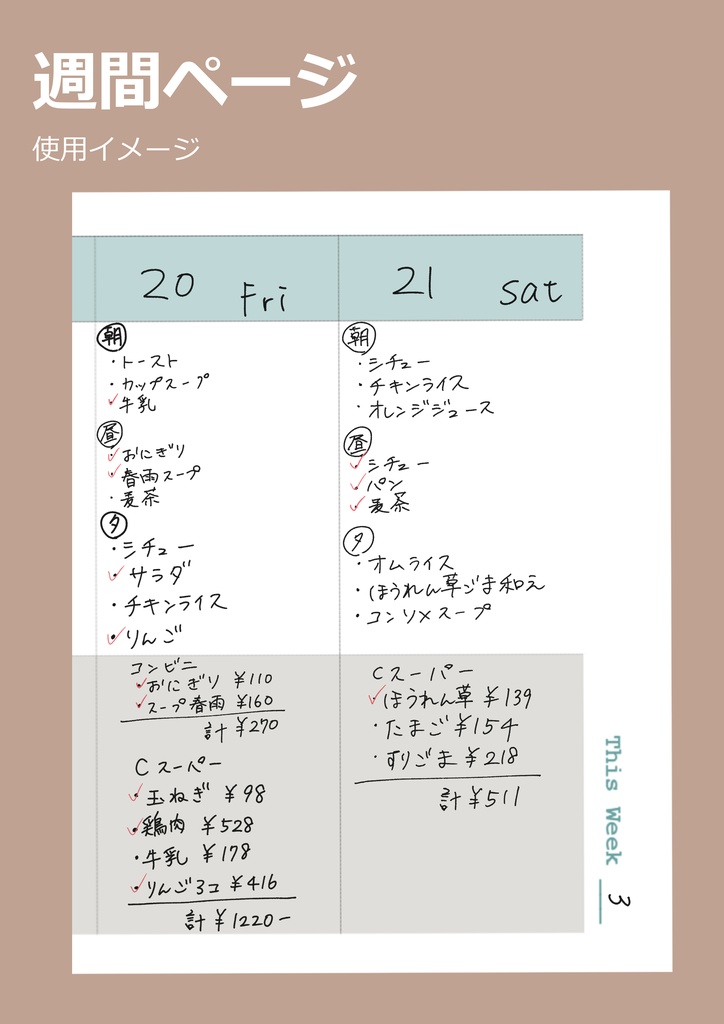 週間ページ
使用イメージ
20 Fri
朝
・トースト
・カップスープ
・牛乳
昼
・おにぎり
・春雨スープ
・麦茶
夕
・シチュー
・サラダ
・チキンライス
・りんご
コンビニ
・おにぎり ¥110
・スープ春雨 ¥160
計 ¥270
Cスーパー
・玉ねぎ ¥98
・鶏肉 ¥528
・牛乳 ¥178
・りんご3コ ¥416
計 ¥1220-
21 Sat
朝
・シチュー
・チキンライス
・オレンジジュース
昼
・シチュー
・パン
・麦茶
夕
・オムライス
・ほうれん草ごま和え
・コンソメスープ
Cスーパー
・ほうれん草 ¥139
・たまご ¥154
・すりごま ¥218
計 ¥511
This Week 3